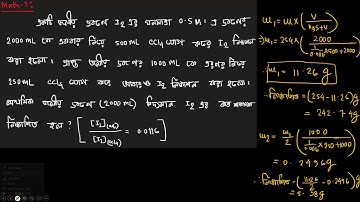 Math-1:
একটি জলীয় দ্রবণে I₂ এর ঘনমাত্রা 0.5 M। এ দ্রবণের
2000 mL কে একবার নিয়ে 500 mL CCl₄ যোগ করে I₂ নিষ্কাশন
করা হলো। প্রাপ্ত জলীয় দ্রবণের 1000 mL কে এরপর নিয়ে
250 mL CCl₄ যোগ করে আবারও I₂ নিষ্কাশন করা হলো।
প্রাথমিক জলীয় দ্রবণে (2000 mL) বিদ্যমান I₂ এর কত
নিষ্কাশিত হবে? [ [I₂](aq) / [I₂](CCl₄) = 0.0116 ]
w₁ = w × ( V / V )
⇒ w₁ = 254 × ( 2000 / 1/0.0116 × 500 + 2000 )
∴ w₁ = 11.26 g
∴ নিষ্কাশিত = (254 - 11.26) g
= 242.74 g
w₂ = w₁/2 ( 1000 / 1/0.0116 × 250 + 1000 )
= 0.2496 g
∴ নিষ্কাশিত = ( 11.26/2 - 0.2496 ) g
= 5.38 g